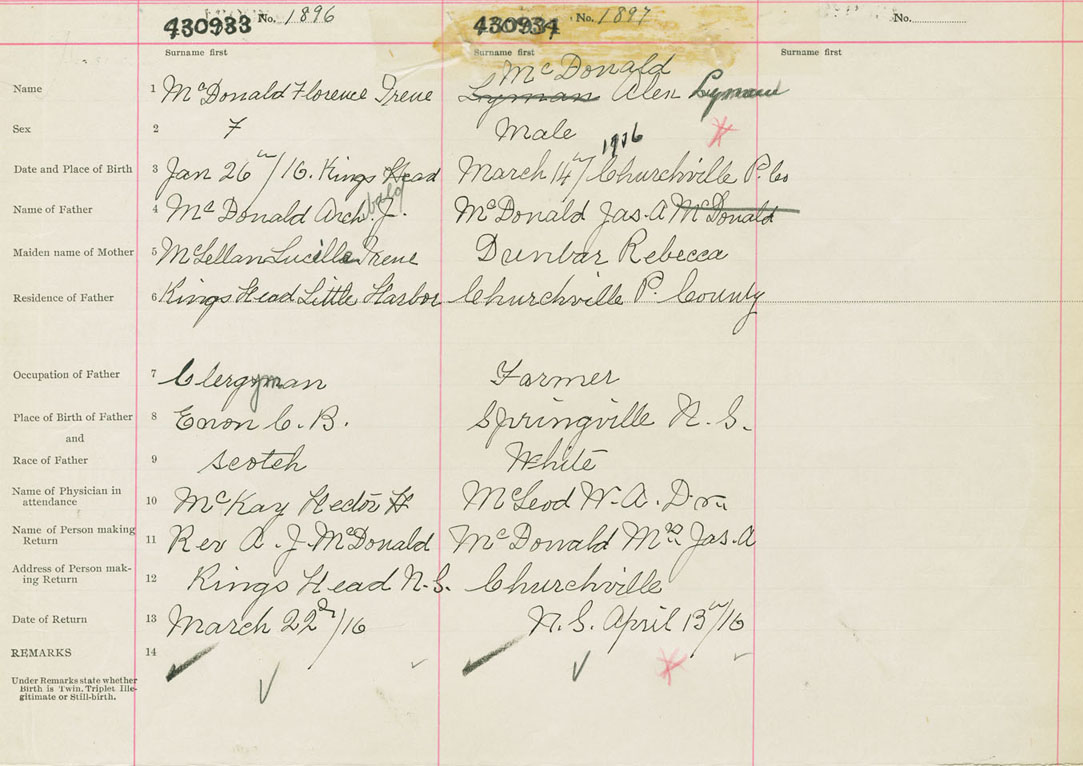 430933 No. 1896 430934 No. 1897 No.
Surname first Surname first Surname first
McDonald
Name 1 McDonald Florence Irene Lyman Alex Lyman
Sex 2 F Male
1916
Date and Place of Birth 3 Jan 26th/16. Kings Head March 14th/ Churchville P. Co
Name of Father 4 McDonald Archibald J. McDonald Jas. A McDonald
Maiden name of Mother 5 McLellan Lucille Irene Dunbar Rebecca
Residence of Father 6 Kings Head Little Harbor Churchville P. County
Occupation of Father 7 Clergyman Farmer
Place of Birth of Father 8 Enon C. B. Springville N. S.
and
Race of Father 9 Scotch White
Name of Physician in
attendance 10 McKay Hector H McLeod W. A. Dr
Name of Person making
Return 11 Rev A. J. McDonald McDonald Mrs. Jas. A
Address of Person mak-
ing Return 12 Kings Head N.S. Churchville
Date of Return 13 March 22nd/16 N.S. April 13th/16
REMARKS 14
Under Remarks state whether
Birth is Twin, Triplet Ille-
gitimate or Still-birth.